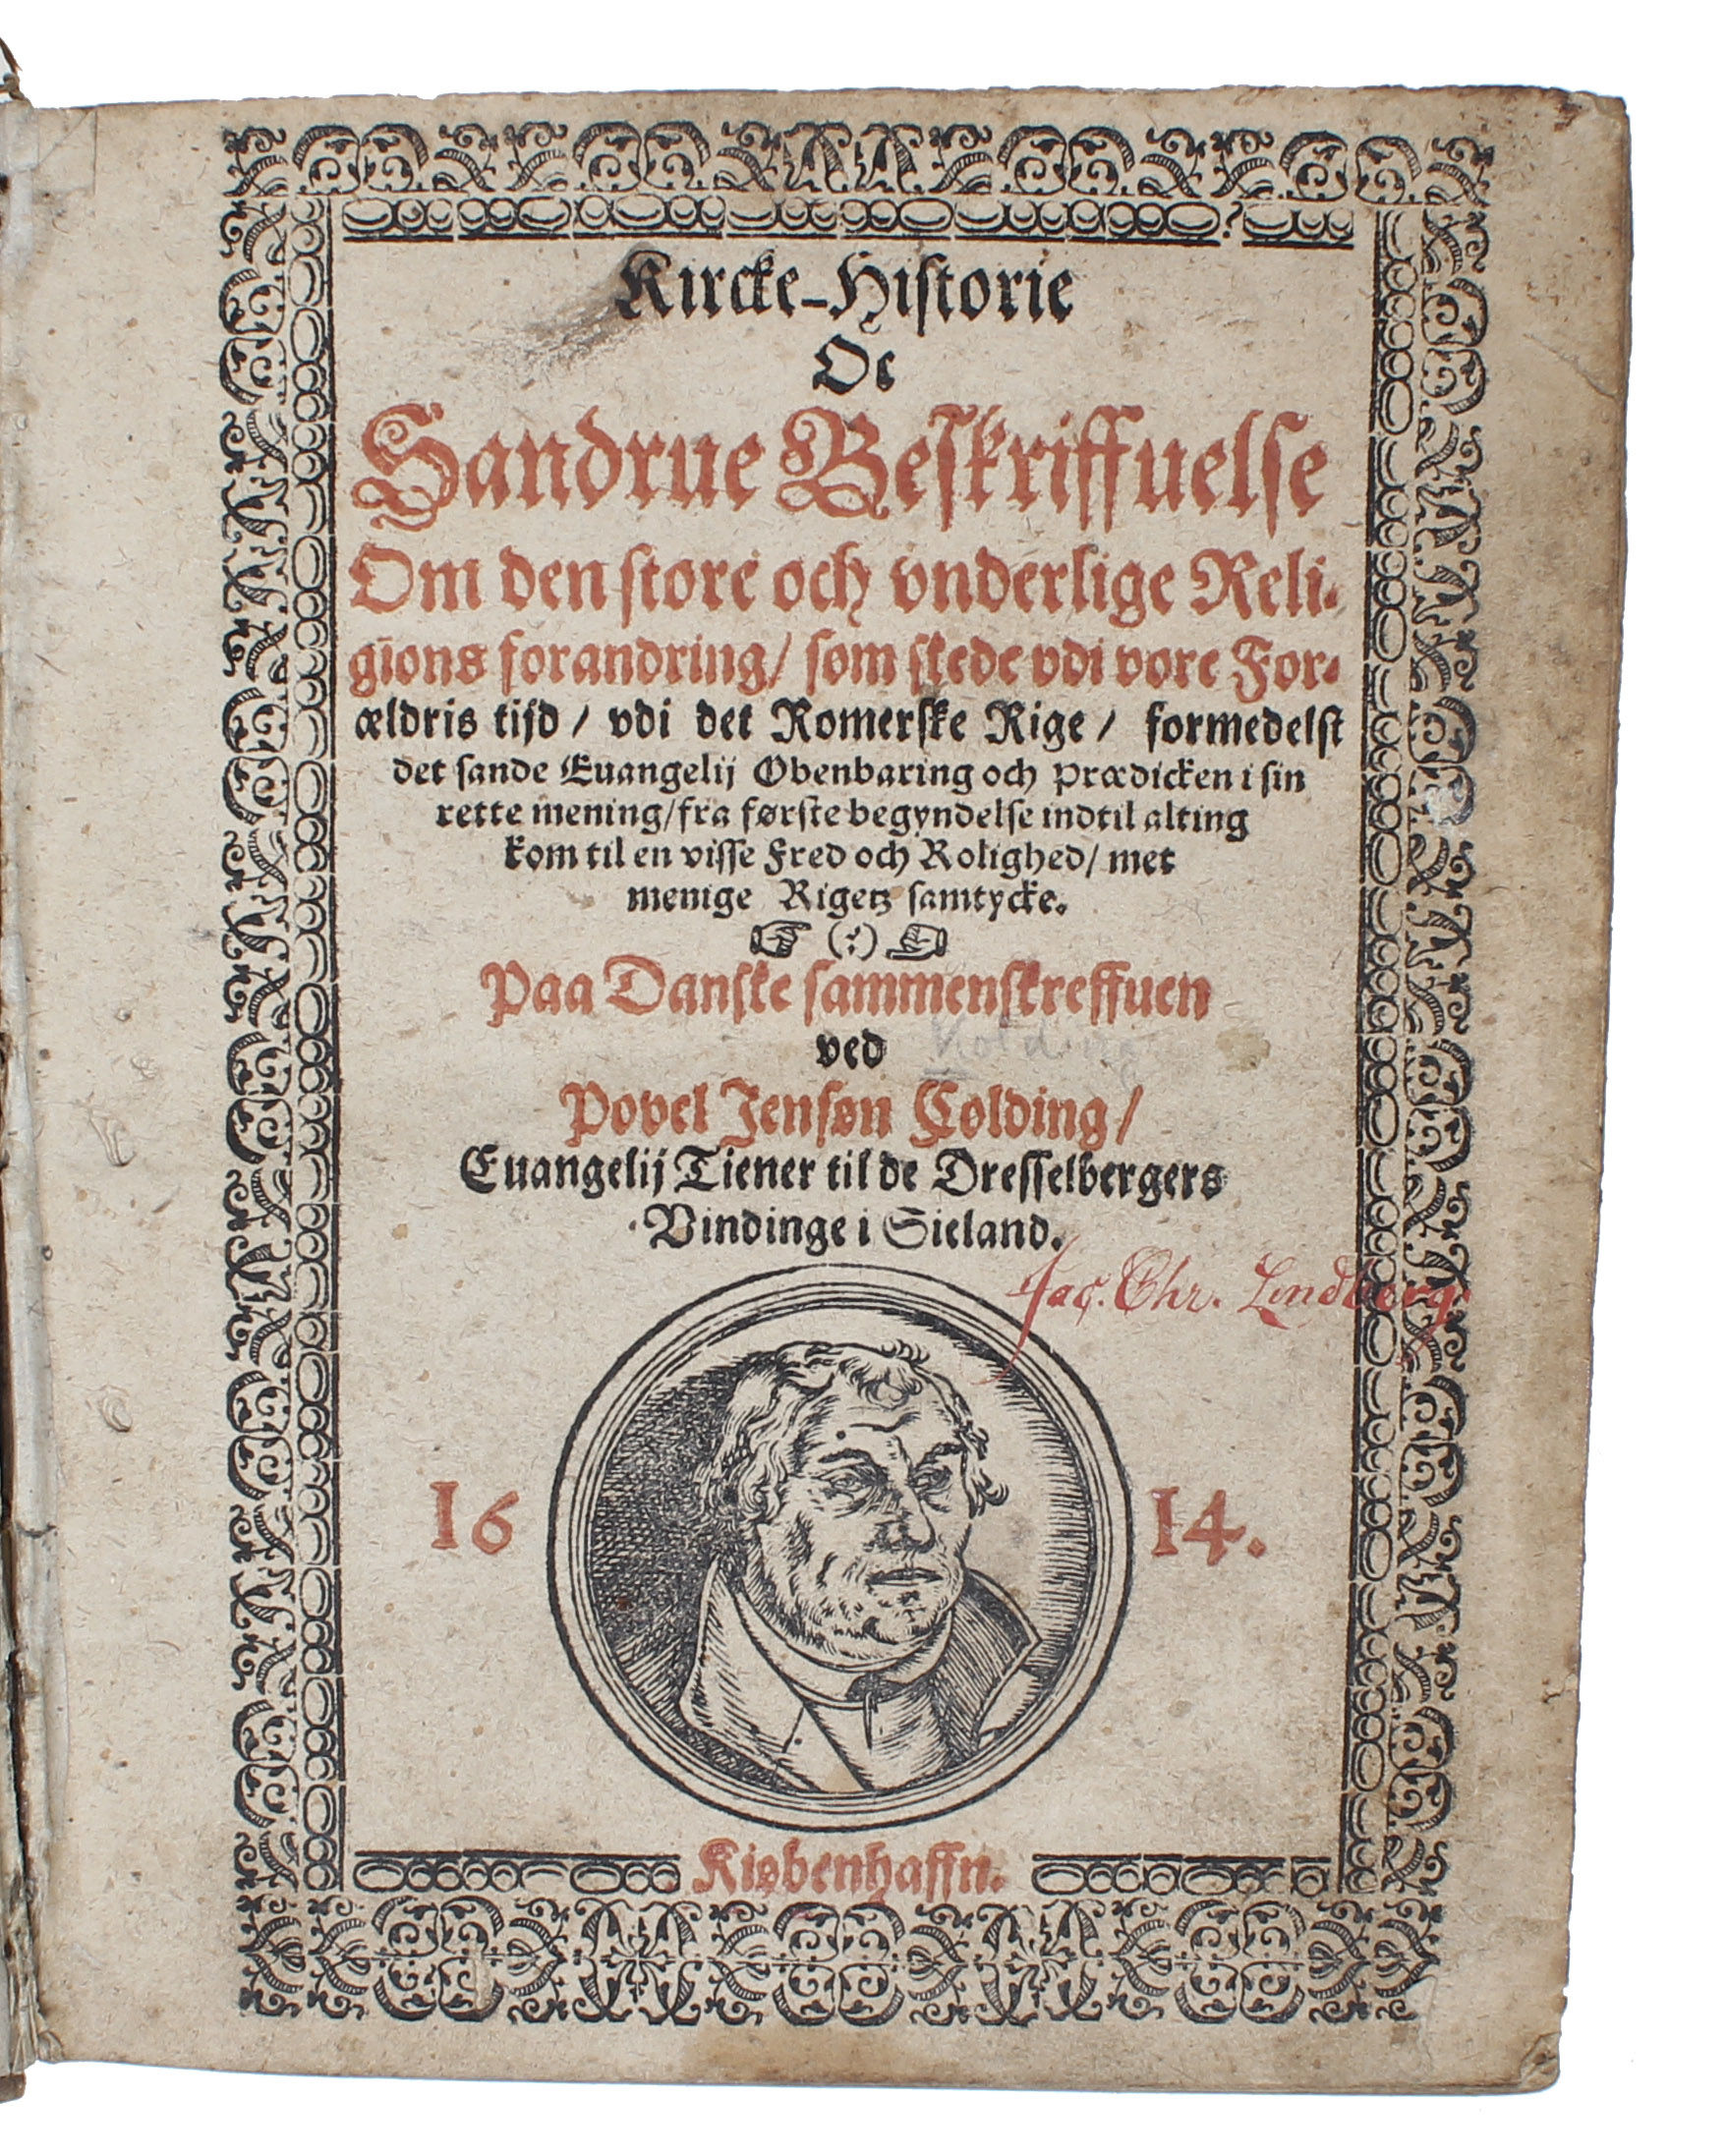 Kircke-Historie
Oc
Sandrue Beskriffuelse
Om den store och vnderlige Reli-
gions forandring/ som skede vdi vore For-
ældris tijd / vdi det Romerske Rige / formedelst
det sande Euangelij Obenbaring och Prædicken i sin
rette mening/ fra første begyndelse indtil alting
kom til en visse Fred och Rolighed/ met
menige Rigetz samtycke.
(:)
Paa Danske sammenskreffuen
ved Kolding
Povel Jensøn Colding/
Euangelij Tiener til de Dresselbergers
Vindinge i Sieland.
Jac. Chr. Lindberg
16 14.
Kiøbenhaffn.